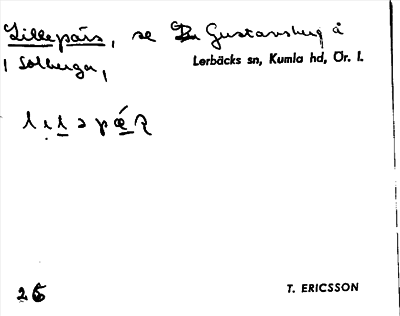 Lillepärs, se Gustavsberg å
i Solberga,
Lerbäcks sn, Kumla hd, Ör. l.
26
T. ERICSSON